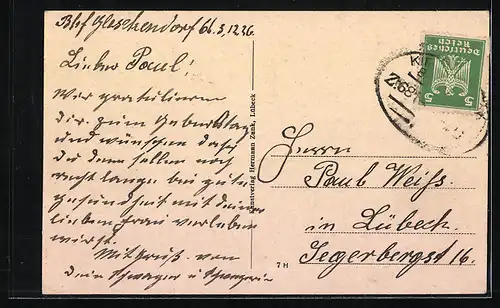 Bhf Gleschendorf d. 3.12.26.
Lieber Paul!
Wir gratulieren
dir zum Geburtstag
und wünschen daß
du den selben noch
recht lange bei guter
gesundheit mit deiner
lieben frau verleben
wirst.
Mit Gruß von
dein Schwager u Schwägerin
Kunstverlag Hermann Zenk, Lübeck
7 H
Deutsches
Reich
5 5
Herrn
Paul Weiss.
in Lübeck.
Segerbergst 16.